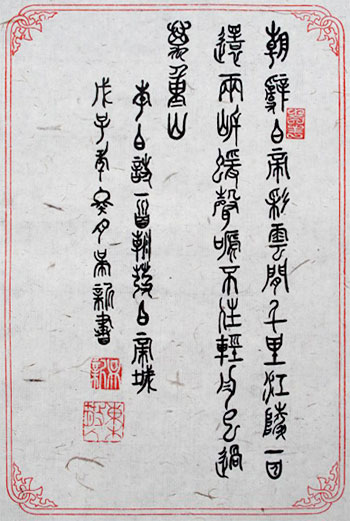 朝辭白帝彩雲間千里江陵一日
還兩岸猿聲啼不住輕舟已過
萬重山
李白詩一首朝發白帝城
戊子年冬月新書